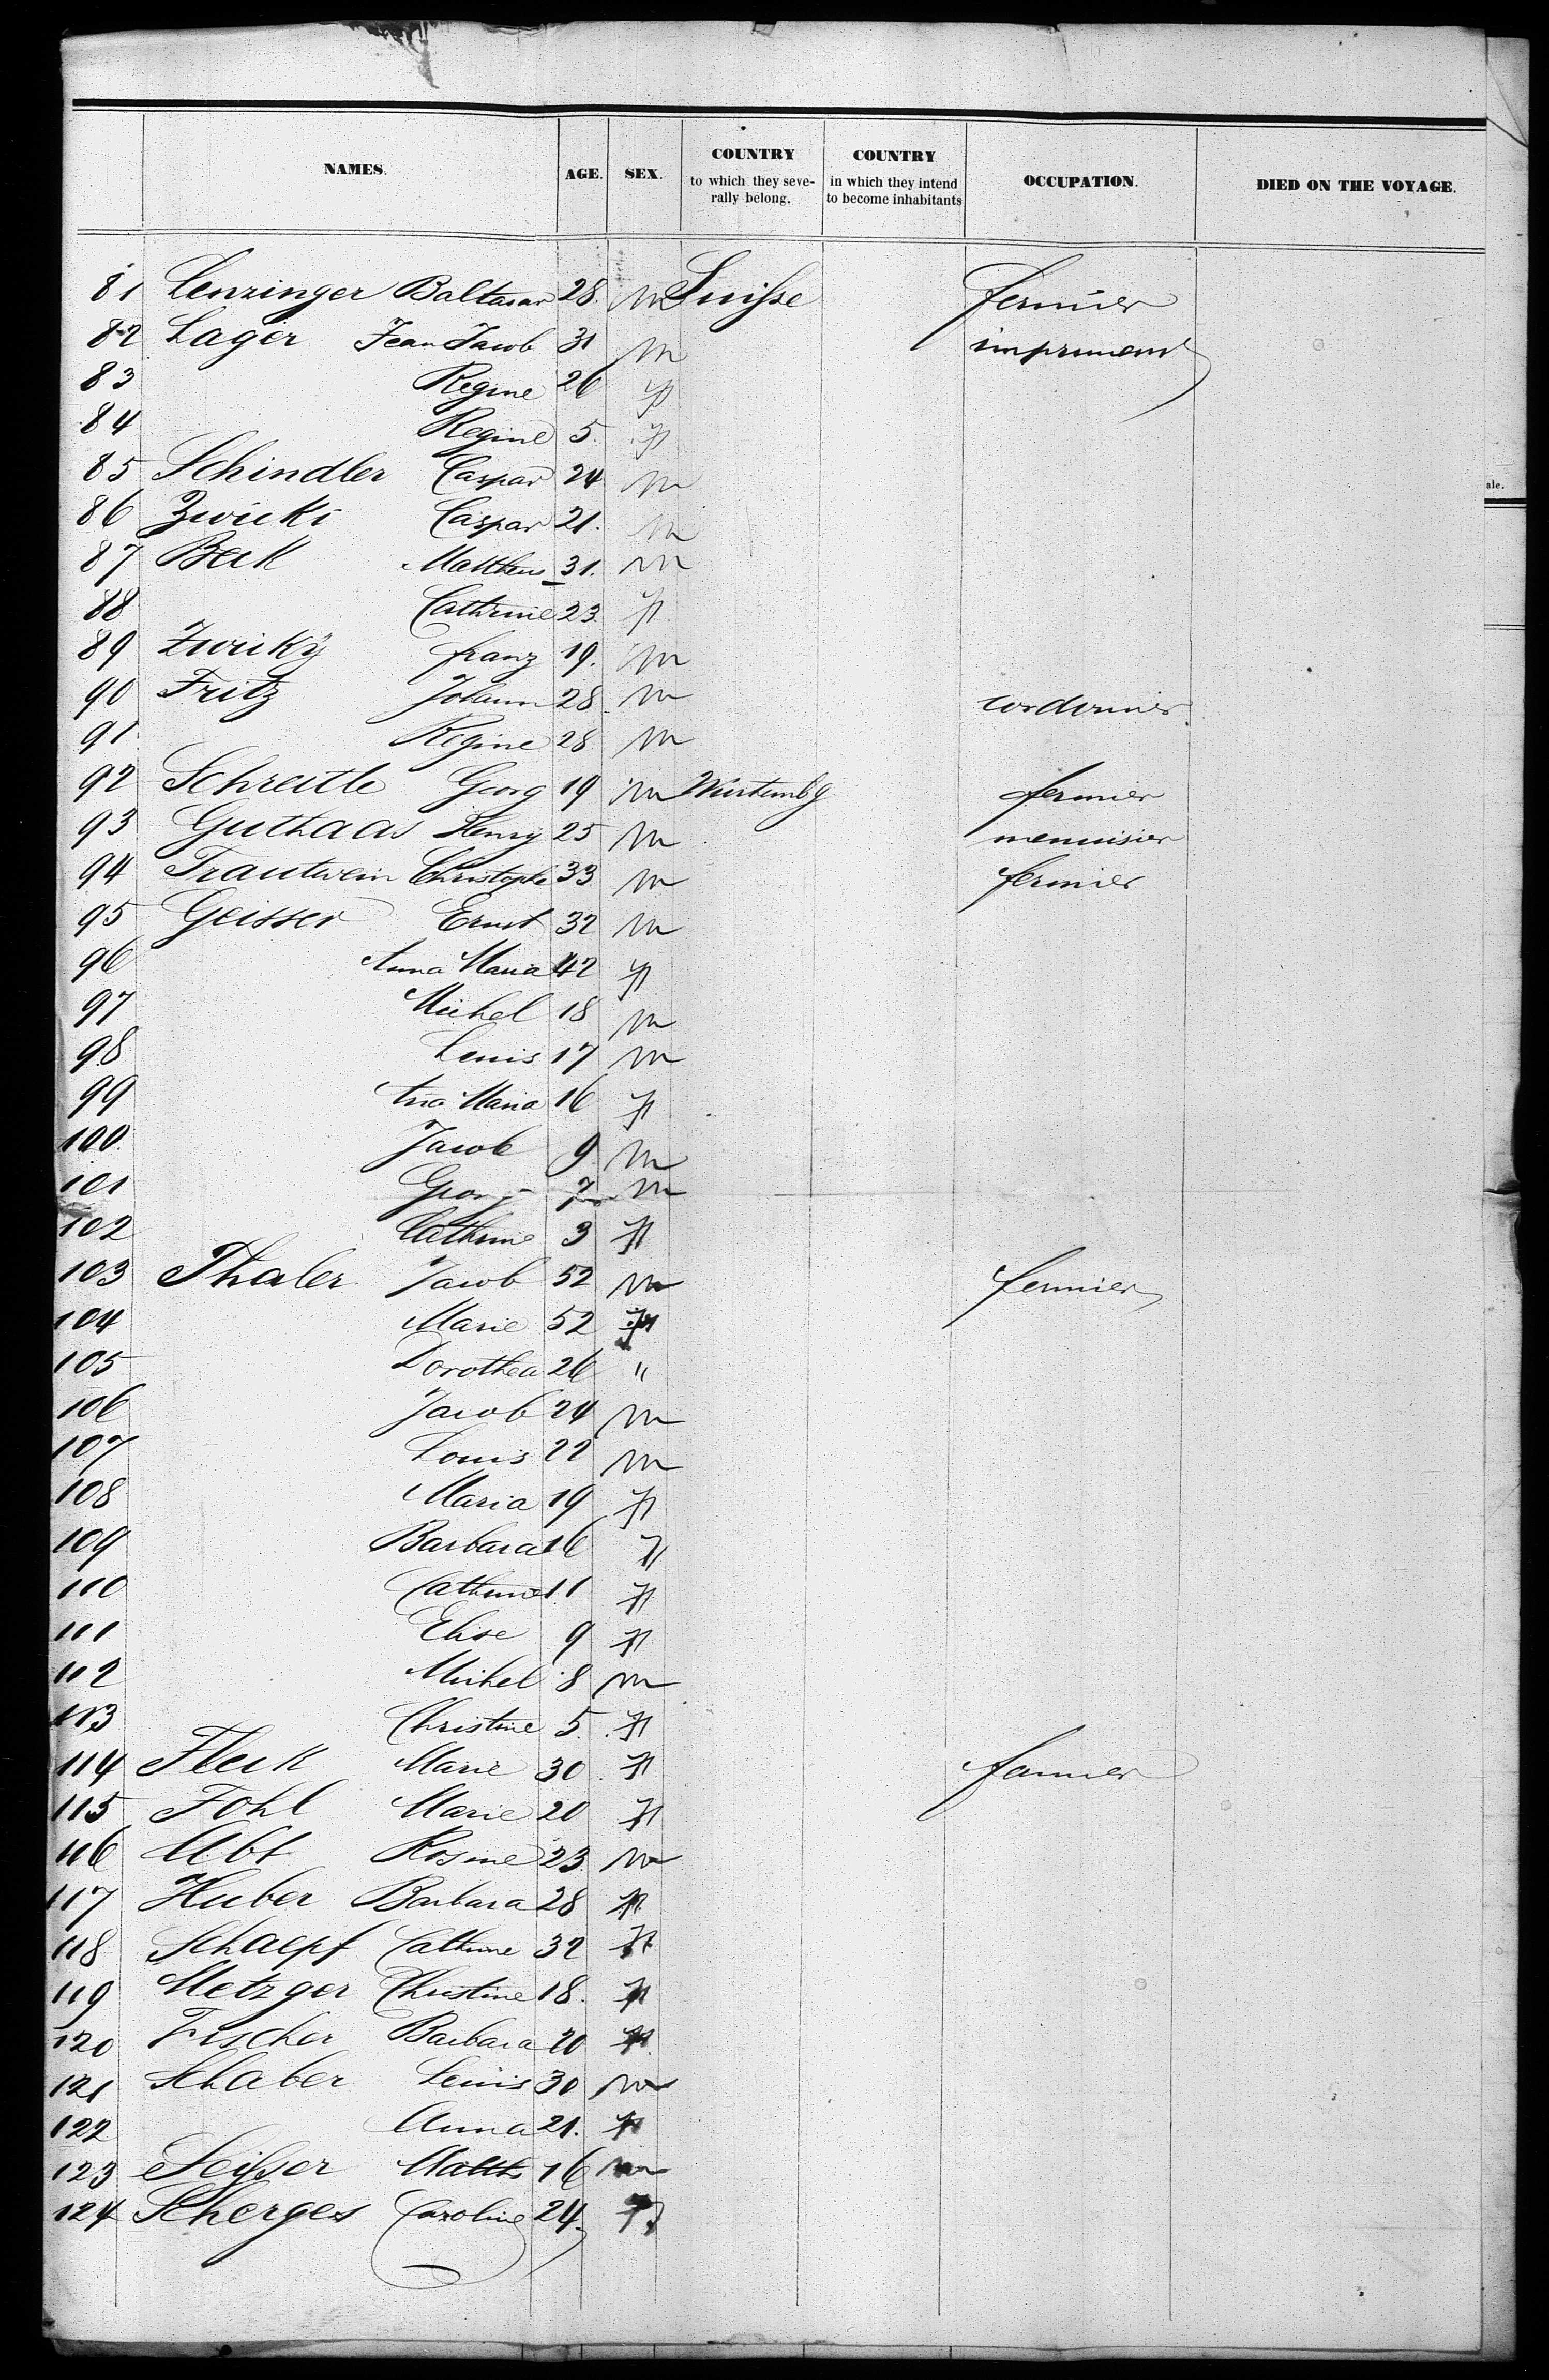 NAMES. AGE. SEX. COUNTRY to which they seve-rally belong. COUNTRY in which they intend to become inhabitants OCCUPATION. DIED ON THE VOYAGE.
81 Lenzinger Baltasar 28. m Suisse fermier
82 Lager Jean Jacob 31 m
83 Regine 26 f
84 Regine 5. f
85 Schindler Caspar 24 m
86 Zwicki Caspar 21. m
87 Beck Mattheus 31. m
88 Cathrine 23. f
89 Zwicky franz 19. m
90 Fritz Johann 28 m cordonnier
91 Regine 28 m
92 Schreitle Georg 19 m Wurtembg fermier
93 Guthaas Henry 25 m menuisier
94 Trautwein Christophe 33 m fermier
95 Geisser Ernst 32 m
96 Anna Maria 42 f
97 Michel 18 m
98 Louis 17 m
99 Ana Maria 16 f
100 Jacob 9 m
101 Georg 7 m
102 Cathrine 3 f
103 Thaler Jacob 52 m fermier
104 Marie 52 f
105 Dorothea 26 "
106 Jacob 24 m
107 Louis 22 m
108 Maria 19 f
109 Barbara 16 f
110 Cathrine 11 f
111 Elise 9 f
112 Michel 8 m
113 Christine 5. f
114 Fleck Marie 30 f farmer
115 Fohl Marie 20 f
116 Abt Rosine 23 m
117 Huber Barbara 28 f
118 Schaepf Cathrine 32 f
119 Metzger Christine 18. f
120 Fischer Barbara 20 f
121 Schaber Louis 30 m
122 Anna 21. f
123 Seisser Matths 16 m
124 Scherges Caroline 24. f
ale.